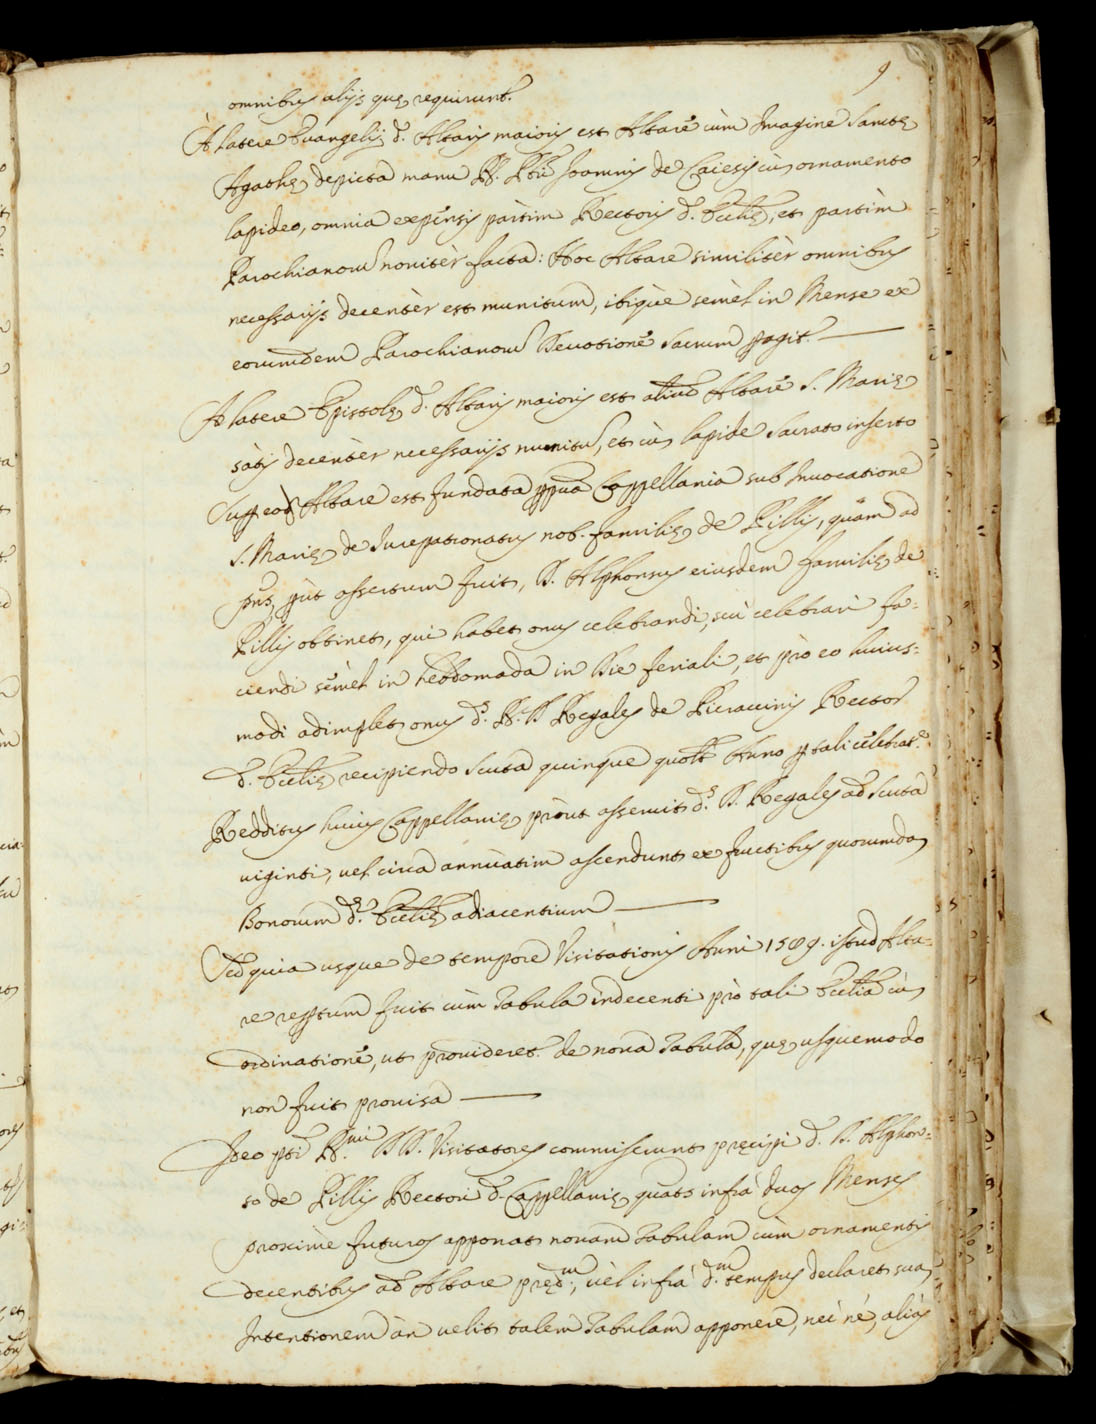 9
omnibus alijs quę requirunt.
À latere Euangelij d. Altaris maioris est Altare cùm Imagine Sanctę
Agathę depicta manu R. Ioannis de cù ornamento
lapideo, omnia expensis partìm Rectoris d. Ecclię, et partìm
Parochianorum noviter facta: Hoc Altare similitèr omnibus
necessarijs decentèr est munitum, ibiq̀ue semèl in Mense ex
eorumdem Parochianorum Deuotione sacrum pagit. —
A latere Epistolę d. Altaris maioris est aliud Altare S. Marię
sàtis decentèr necessarijs munitu, et cù lapide sacrato inserto
Supr eod Altare est fundata ppua Cappellania sub Inuocatione
S. Marię de Iurepatronatus nob. familię de Pillis, quàm ad
pns, put assertum fuit, D. Alphonsus eiusdem familię de
Pillis obtinet, qui habet onus celebrandi, seù celebrari fa-
ciendi semèl in hebdomada in Die feriali, et prò eo huius-
modi adimplet onus ds. R. D. Regales de Pieraccinis Rector
d. Ecclię recipiendo scuta quinque quolt Anno p tali celebrat.e
Redditus huius Cappellanię, prout asseruit ds. D. Regales ad scuta
uiginti, uel circa annuatim ascendunt ex fructibus quorumda
Bonorum d. Ecclię adiacentium —
Sed quia usque de tempore Visitationis Anni 1589. istud Alta-
re reptum fuit cùm Tabula indecenti prò tali Ecclia cù
ordinatione, ut prouideret. de noua Tabula, quę usquemodo
non fuit prouisa —
Ideo pti R.mi DD. Visitatores commiserunt pręcipi d. D. Alphon-
so de Pillis Rectori d. Cappellanię, quats infrà duos Menses
proxime futuros apponat nouam Tabulam cùm ornamentis
decentibus ad Altare pręd.m, uèl infrà d.m tempus declaret suà
Intentionem àn uelit talem Tabulam apponere, nec nè, aliàs